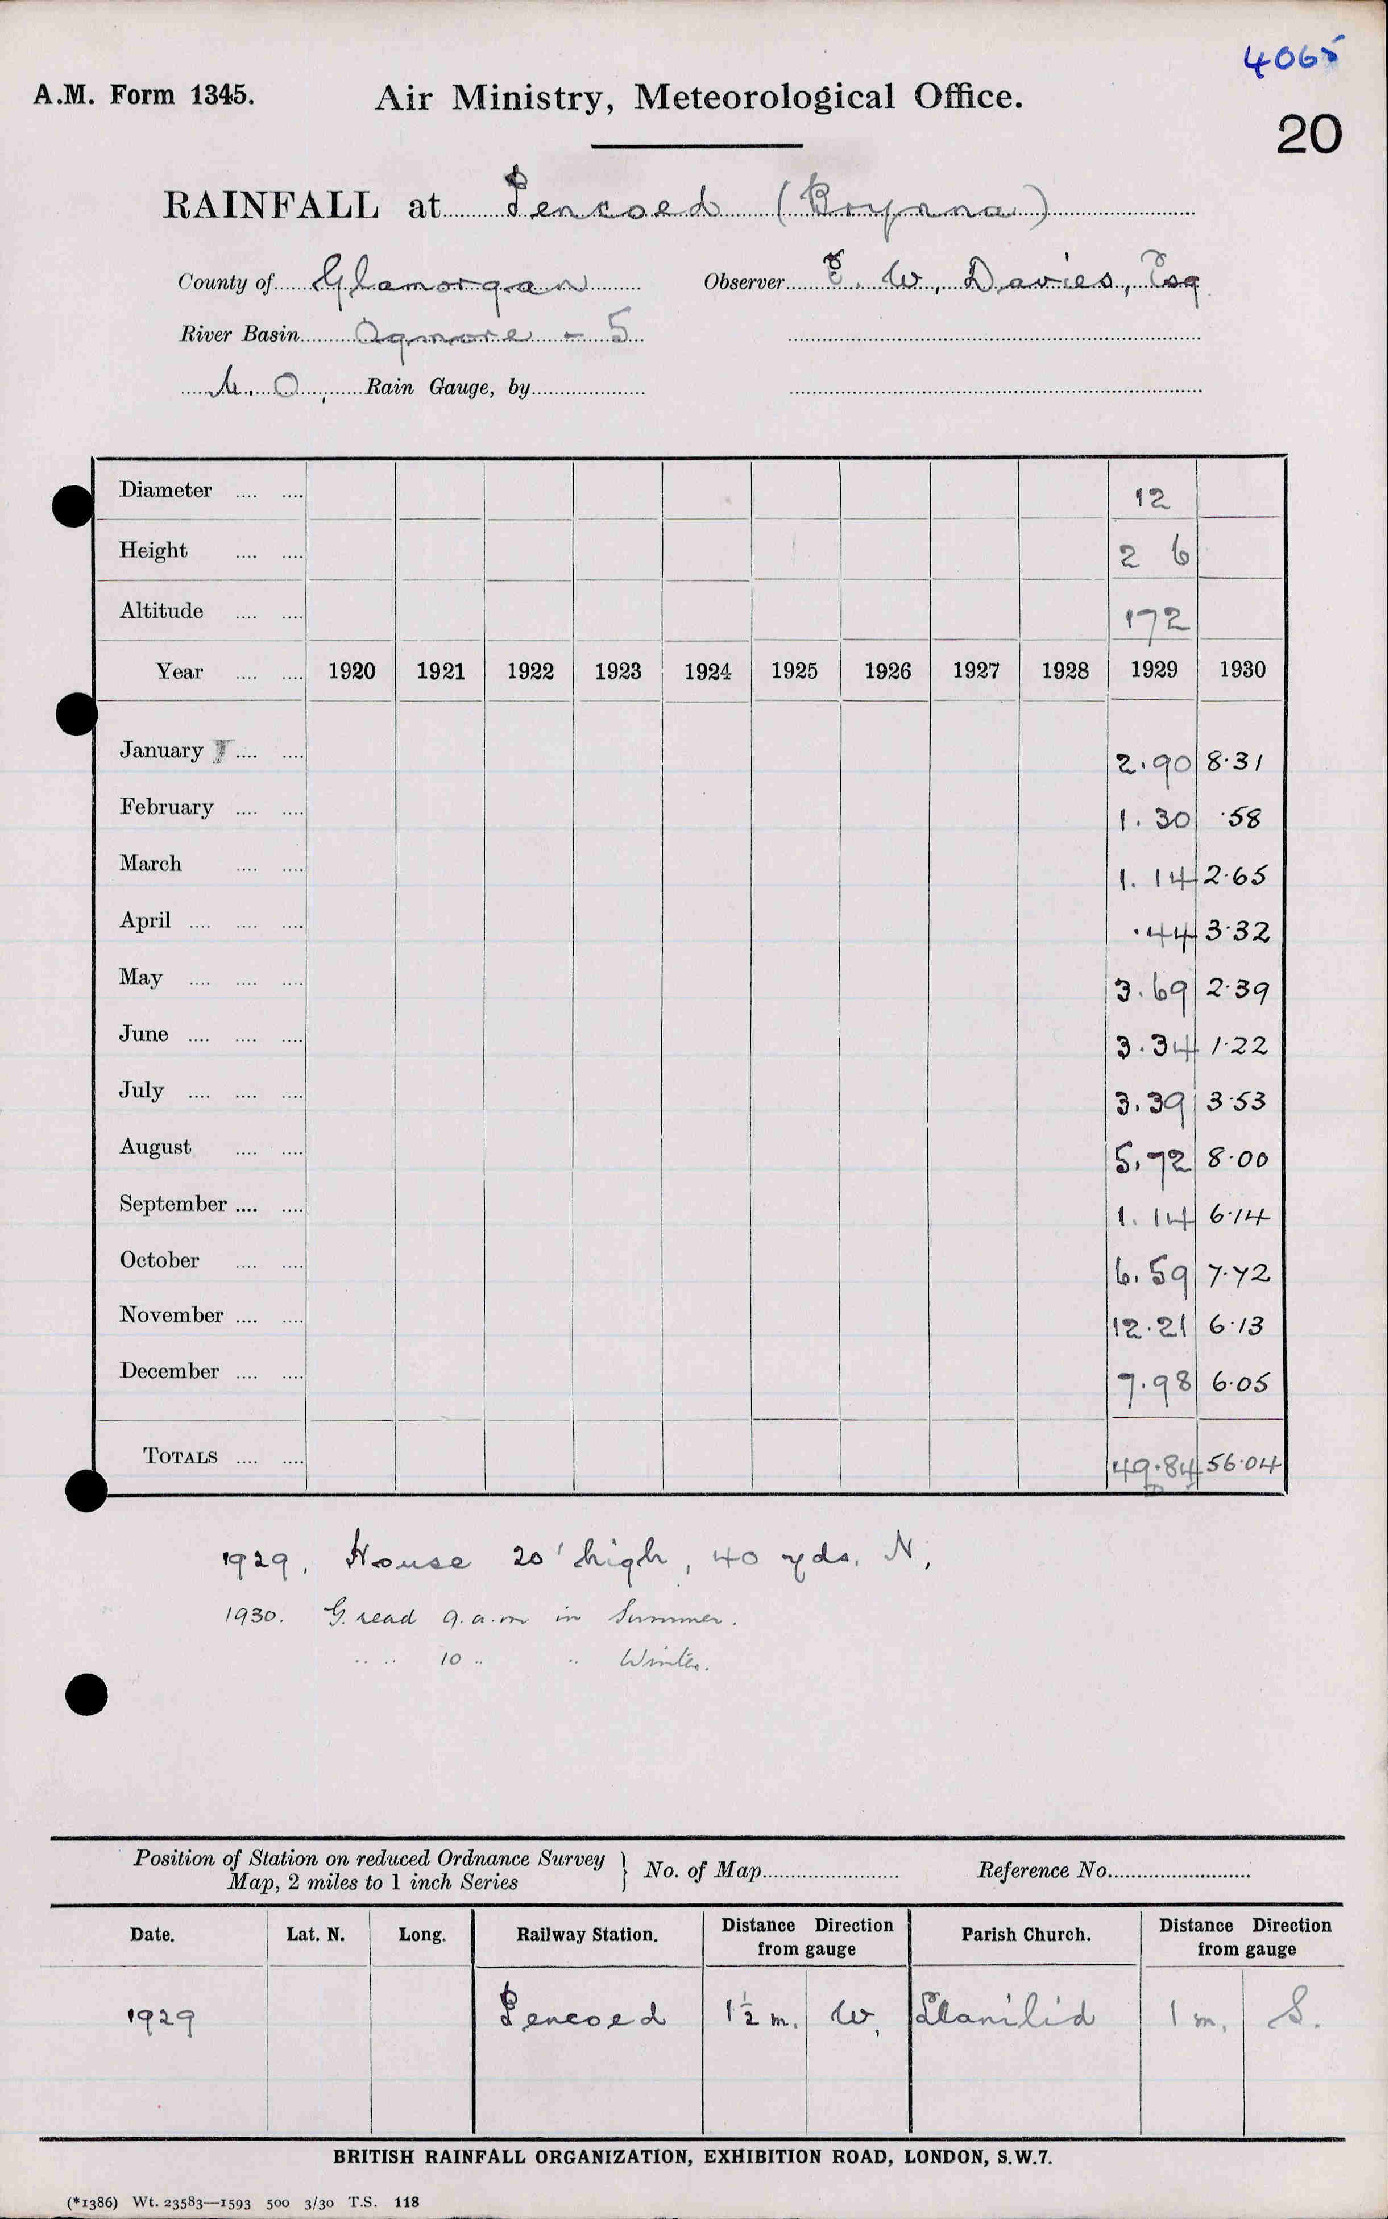 4065
A.M. Form 1345. Air Ministry, Meteorological Office.
20
RAINFALL at Pencoed (Brynna)
County of Glamorgan Observer E. W. Davies, Esq
River Basin Ogmore - 5
M.O. Rain Gauge, by
Diameter 12
Height 2 6
Altitude 172
Year 1920 1921 1922 1923 1924 1925 1926 1927 1928 1929 1930
January 2.90 8.31
February 1.30 .58
March 1.14 2.65
April .44 3.32
May 3.69 2.39
June 3.34 1.22
July 3.39 3.53
August 5.72 8.00
September 1.14 6.14
October 6.59 7.72
November 12.21 6.13
December 7.98 6.05
TOTALS 49.84 56.04
1929. House 20' high, 40 yds. N.
1930. G. read 9.a.m in Summer.
.. .. 10 .. .. Winter.
Position of Station on reduced Ordnance Survey
Map, 2 miles to 1 inch Series } No. of Map Reference No.
Date. Lat. N. Long. Railway Station. Distance Direction from gauge Parish Church. Distance Direction from gauge
1929 Pencoed 1½ m. W. Llanilid 1 m. S.
BRITISH RAINFALL ORGANIZATION, EXHIBITION ROAD, LONDON, S.W.7.
(*1386) Wt. 23583—1593 500 3/30 T.S. 118